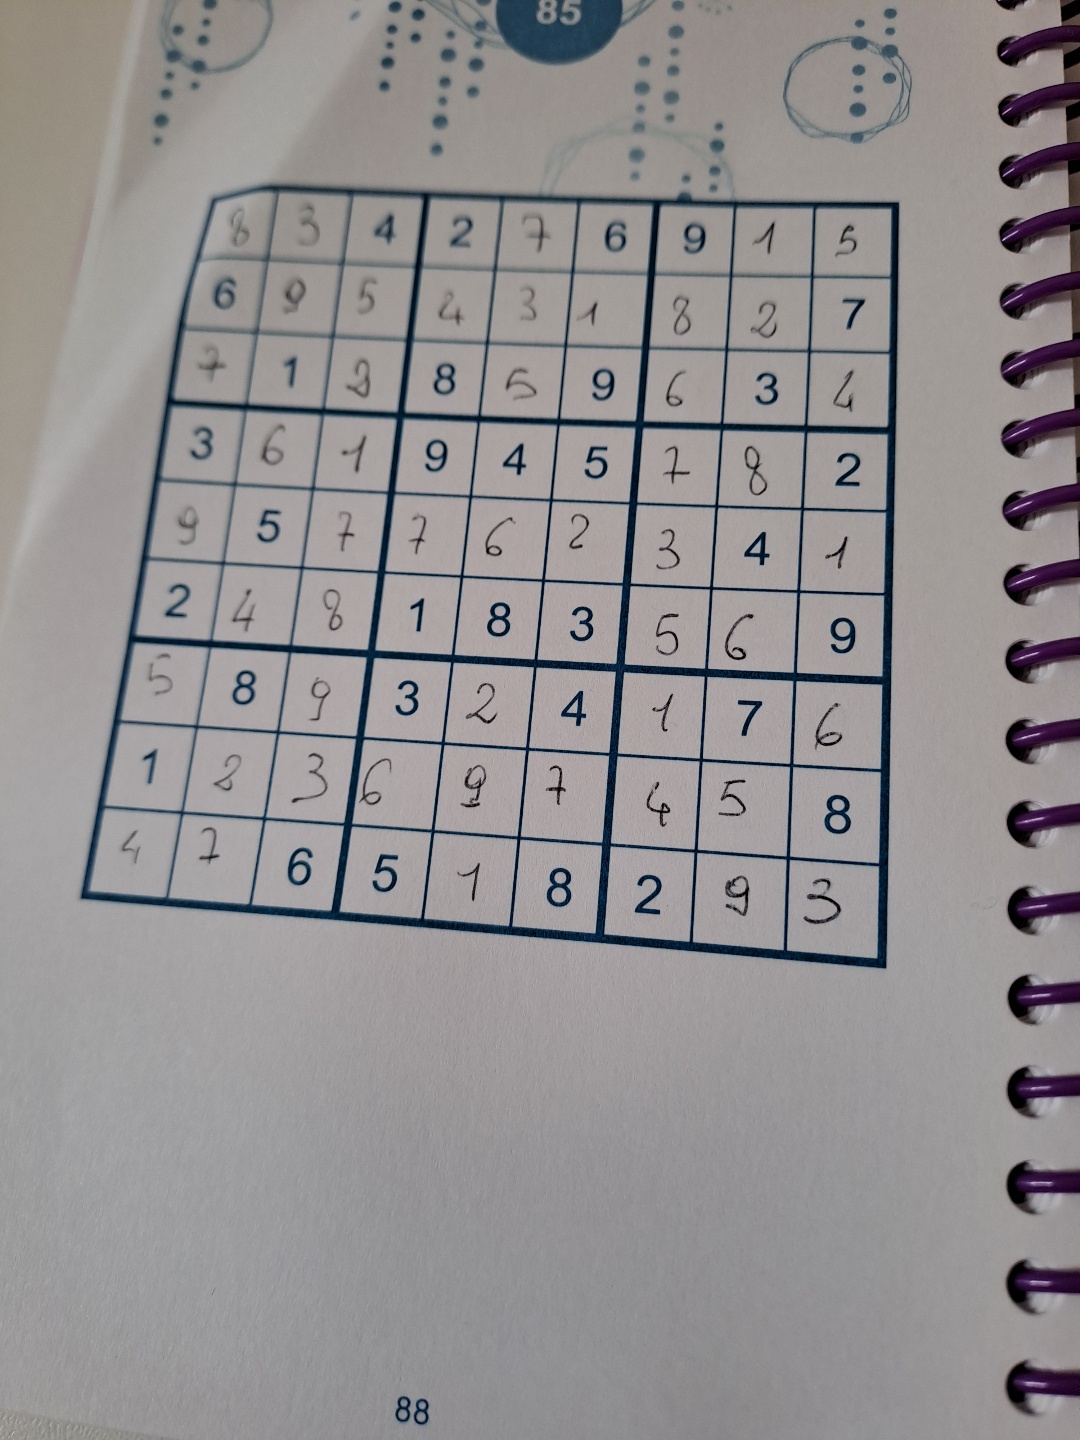 85
8 3 4 2 7 6 9 1 5
6 9 5 4 3 1 8 2 7
7 1 2 8 5 9 6 3 4
3 6 1 9 4 5 7 8 2
9 5 7 7 6 2 3 4 1
2 4 8 1 8 3 5 6 9
5 8 9 3 2 4 1 7 6
1 2 3 6 9 7 4 5 8
4 7 6 5 1 8 2 9 3
88